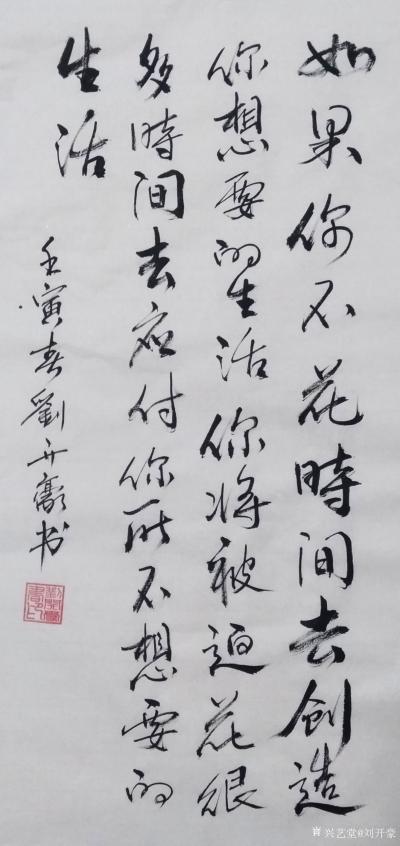 如果你不花時间去创造
你想要的生活你将被迫花很
多時间去应付你所不想要的
生活
壬寅春劉开豪书
兴艺堂@刘开豪